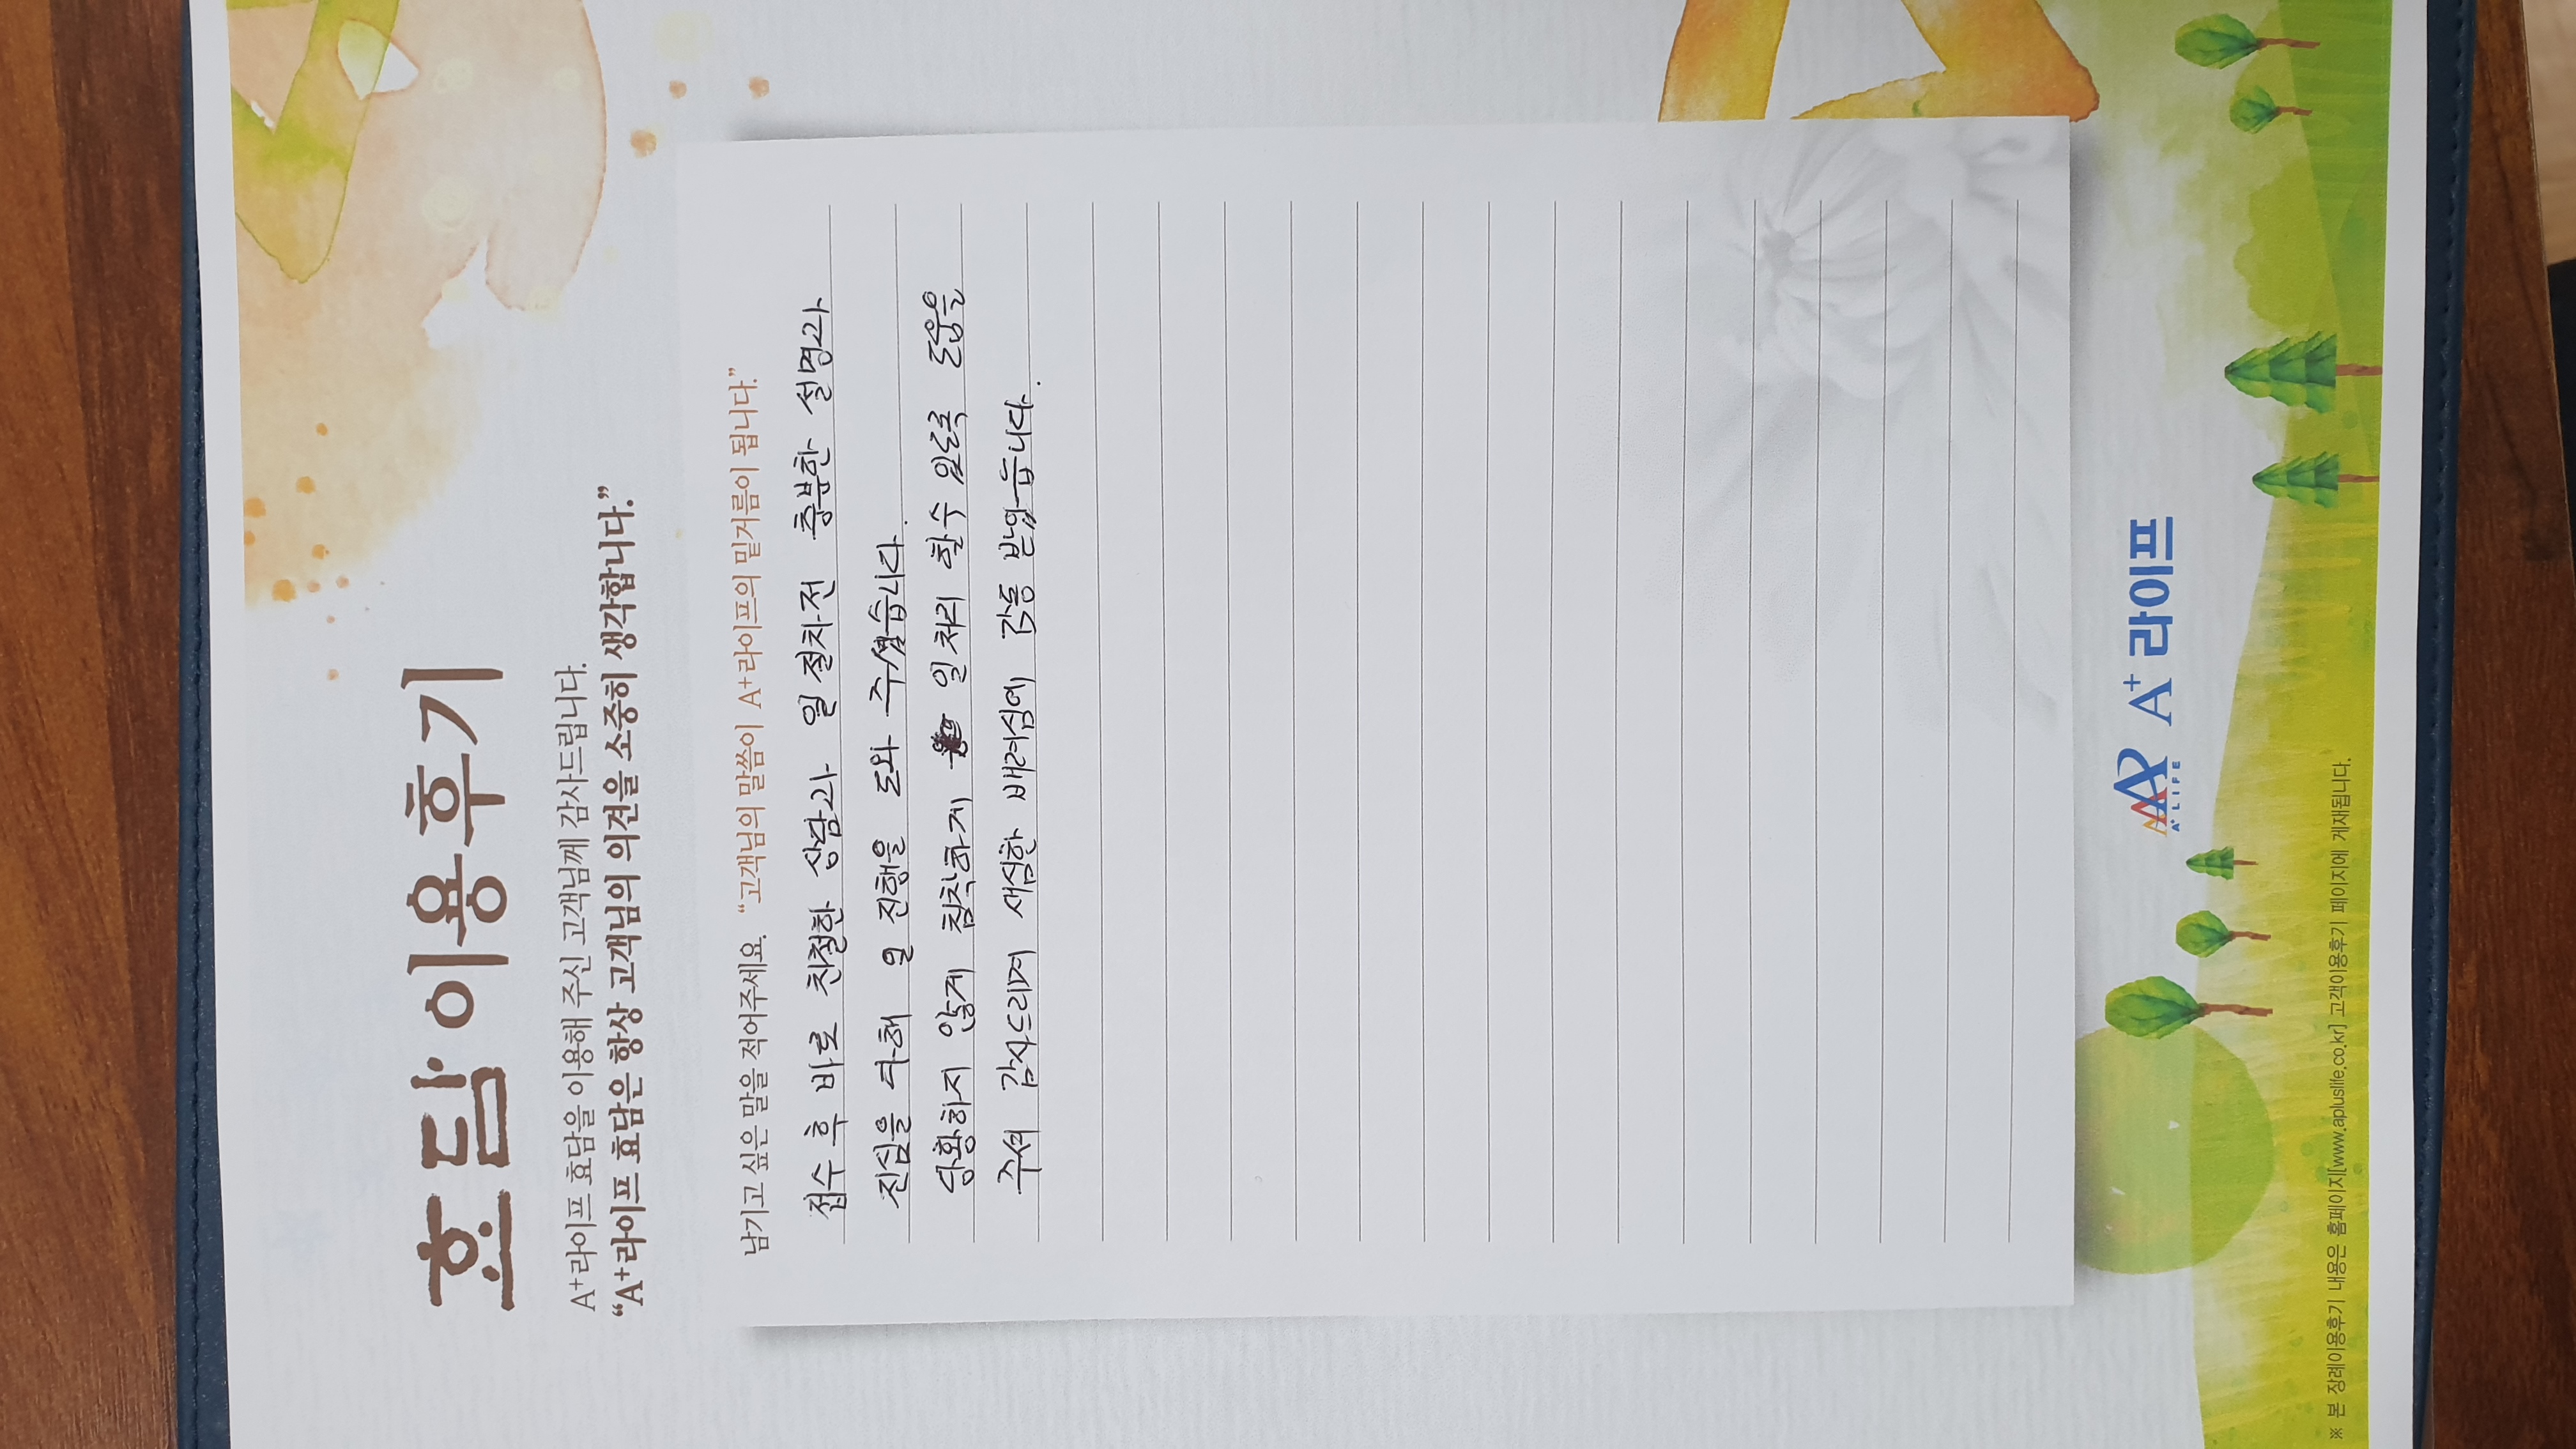 효담 이용후기
A⁺라이프 효담을 이용해 주신 고객님께 감사드립니다.
“A⁺라이프 효담은 항상 고객님의 의견을 소중히 생각합니다.”
남기고 싶은 말을 적어주세요. “고객님의 말씀이 A⁺라이프의 밑거름이 됩니다.”
접수 후 바로 친절한 상담과 일 절차전 충분한 설명과
진심을 다해 일 진행을 도와 주셨습니다.
당황하지 않게 침착하게 일 처리 할수 있도록 도움을
주셔 감사드리며 세심한 배려심에 감동 받았습니다.
A⁺ LIFE A⁺ 라이프
※ 본 장례이용후기 내용은 홈페이지[www.apluslife.co.kr] 고객이용후기 페이지에 게재됩니다.